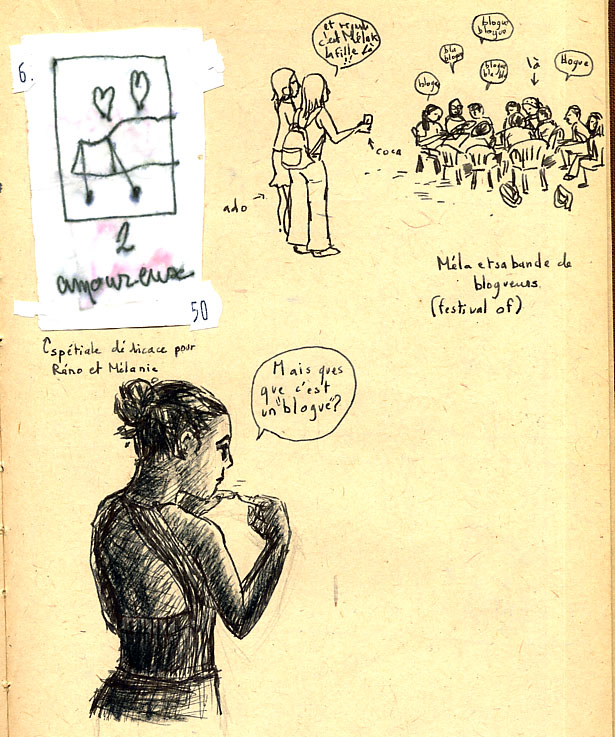 6.
2
amoureuse
50
(spétiale dédicace pour
Réno et Mélanie
et regarde
c'est Mélak
la fille là
!!
ado
coca
blogue
blogue
bla
blogue
blogue
bla-bla
blogue
là
blogue
Méla et sa bande de
blogueurs.
(festival of)
Mais ques
que c'est
un "blogue"?